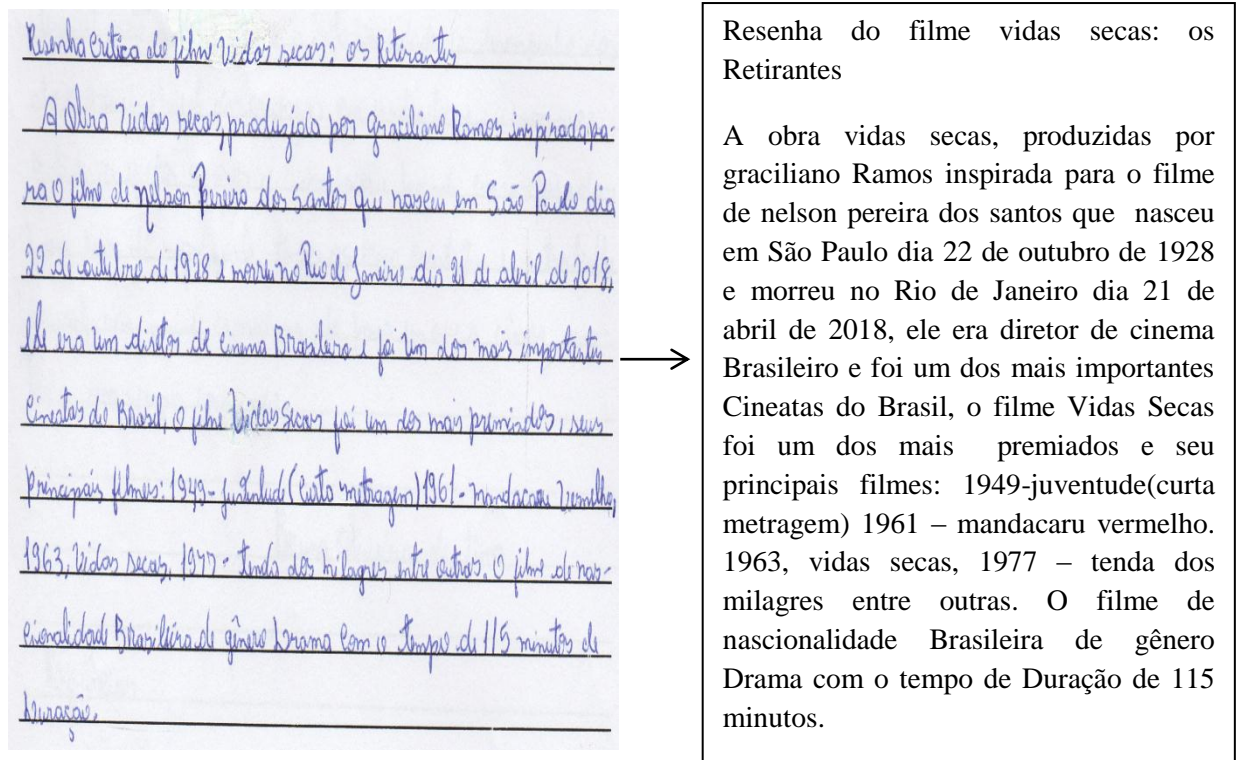 Resenha Crítica do filme Vidas secas: os Retirantes
A Obra Vidas secas, produzida por graciliano Ramos inspirada pa-
ra o filme de nelson Pereira dos Santos que nasceu em São Paulo dia
22 de outubro de 1928 e morreu no Rio de Janeiro dia 21 de abril de 2018,
Ele era um diretor de cinema Brasileiro e foi um dos mais importantes
Cineatas do Brasil, O filme Vidas Secas foi um dos mais premiados, seus
principais filmes: 1949- juventude (curta metragem) 1961- mandacaru Vermelho,
1963, Vidas secas, 1977- tenda dos milagres entre outras. O filme de nas-
cionalidade Brasileira de gênero Drama com o tempo de 115 minutos de
Duração.
Resenha do filme vidas secas: os
Retirantes
A obra vidas secas, produzidas por
graciliano Ramos inspirada para o filme
de nelson pereira dos santos que nasceu
em São Paulo dia 22 de outubro de 1928
e morreu no Rio de Janeiro dia 21 de
abril de 2018, ele era diretor de cinema
Brasileiro e foi um dos mais importantes
Cineatas do Brasil, o filme Vidas Secas
foi um dos mais premiados e seu
principais filmes: 1949-juventude(curta
metragem) 1961 – mandacaru vermelho.
1963, vidas secas, 1977 – tenda dos
milagres entre outras. O filme de
nascionalidade Brasileira de gênero
Drama com o tempo de Duração de 115
minutos.